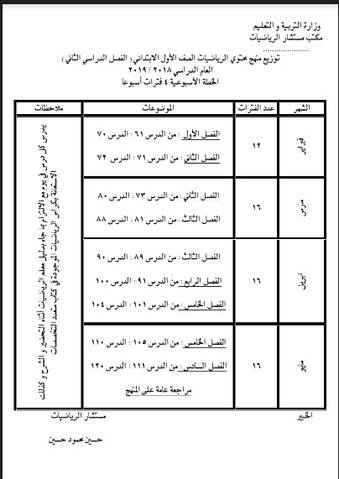 وزارة التربية و التعليم
مكتب مستشار الرياضيات
توزيع منهج محتوي الرياضيات الصف الأول الابتدائي ( الفصل الدراسي الثاني )
العام الدراسي ٢٠١٨ / ٢٠١٩
الخطة الأسبوعية ٤ فترات أسبوعا
الشهر عدد الفترات الموضوعات ملاحظات
فبراير ١٢
الفصل الأول : من الدرس ٦١ : الدرس ٧٠
الفصل الثاني : من الدرس ٧١ : الدرس ٧٢
مارس ١٦
الفصل الثاني : من الدرس ٧٣ : الدرس ٨٠
الفصل الثالث : من الدرس ٨١ : الدرس ٨٨
ابريل ١٦
الفصل الثالث : من الدرس ٨٩ : الدرس ٩٠
الفصل الرابع : من الدرس ٩١ : الدرس ١٠٠
الفصل الخامس : من الدرس ١٠١ : الدرس ١٠٤
مايو ١٦
الفصل الخامس : من الدرس ١٠٥ : الدرس ١١٠
الفصل السادس : من الدرس ١١١ : الدرس ١٢٠
مراجعة عامة على المنهج
يدرس كل درس في يوم مع الالتزام بما جاء بدليل معلم الرياضيات أثناء التحضير و الشرح و كذلك
الاستعانة بكراس الرياضيات الموجودة في كتاب متعدد التخصصات
الخبير مستشار الرياضيات
حسين محمود حسين